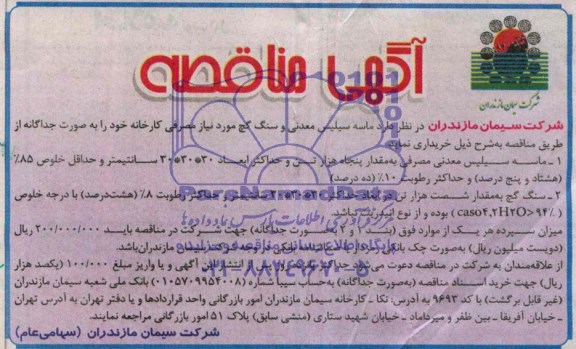 آگهی مناقصه
شرکت سیمان مازندران
شرکت سیمان مازندران در نظر دارد ماسه سیلیس معدنی و سنگ گچ مورد نیاز مصرفی کارخانه خود را به صورت جداگانه از
طریق مناقصه به‌شرح ذیل خریداری نماید
۱ـ ماسه سیلیس معدنی مصرفی به‌مقدار پنجاه هزار تن و حداکثر ابعاد ۳۰*۳۰*۳۰ سانتیمتر و حداقل خلوص ۸۵٪
(هشتاد و پنج درصد) و حداکثر رطوبت ۱۰٪ (ده درصد)
۲ـ سنگ گچ به‌مقدار شصت هزار تن در ابعاد حداکثر ۳۰*۳۰*۳۰ سانتیمتر و حداکثر رطوبت ۸٪ (هشت‌درصد) با درجه خلوص
(caso۴,۲H۲O>۹۴٪) بوده و از نوع آنیدریت نباشد.
میزان سپرده هر یک از موارد فوق (بند ۱ و ۲ به‌صورت جداگانه) جهت شرکت در مناقصه باید ۲۰۰/۰۰۰/۰۰۰ ریال
(دویست میلیون ریال) به‌صورت چک بانکی رمزدار یا ضمانتنامه بانکی در وجه شرکت سیمان مازندران‌باشد.
از علاقه‌مندان به شرکت در مناقصه دعوت می‌شود حداکثر انتشار این آگهی و یا واریز مبلغ ۱۰۰/۰۰۰ (یکصد هزار
ریال) جهت خرید اسناد مناقصه (به‌صورت جداگانه) به‌حساب سیبا شماره (۰۱۰۵۷۰۹۹۵۴۰۰۸) بانک ملی شعبه سیمان مازندران
(غیر قابل برگشت) با کد ۹۶۹۳ به آدرس: نکا ـ کارخانه سیمان مازندران امور بازرگانی واحد قراردادها و یا دفتر تهران به آدرس تهران
ـ خیابان آفریقا ـ بین ظفر و میرداماد ـ خیابان شهید ستاری (منشی سابق) پلاک ۵۱ امور بازرگانی مراجعه نمایند.
شرکت سیمان مازندران (سهامی‌عام)
ParsNamadData
فن‌آوری اطلاعات پارس نماد داده‌ها
۰۲۱-۸۸۳۴۹۶۷۰-۵